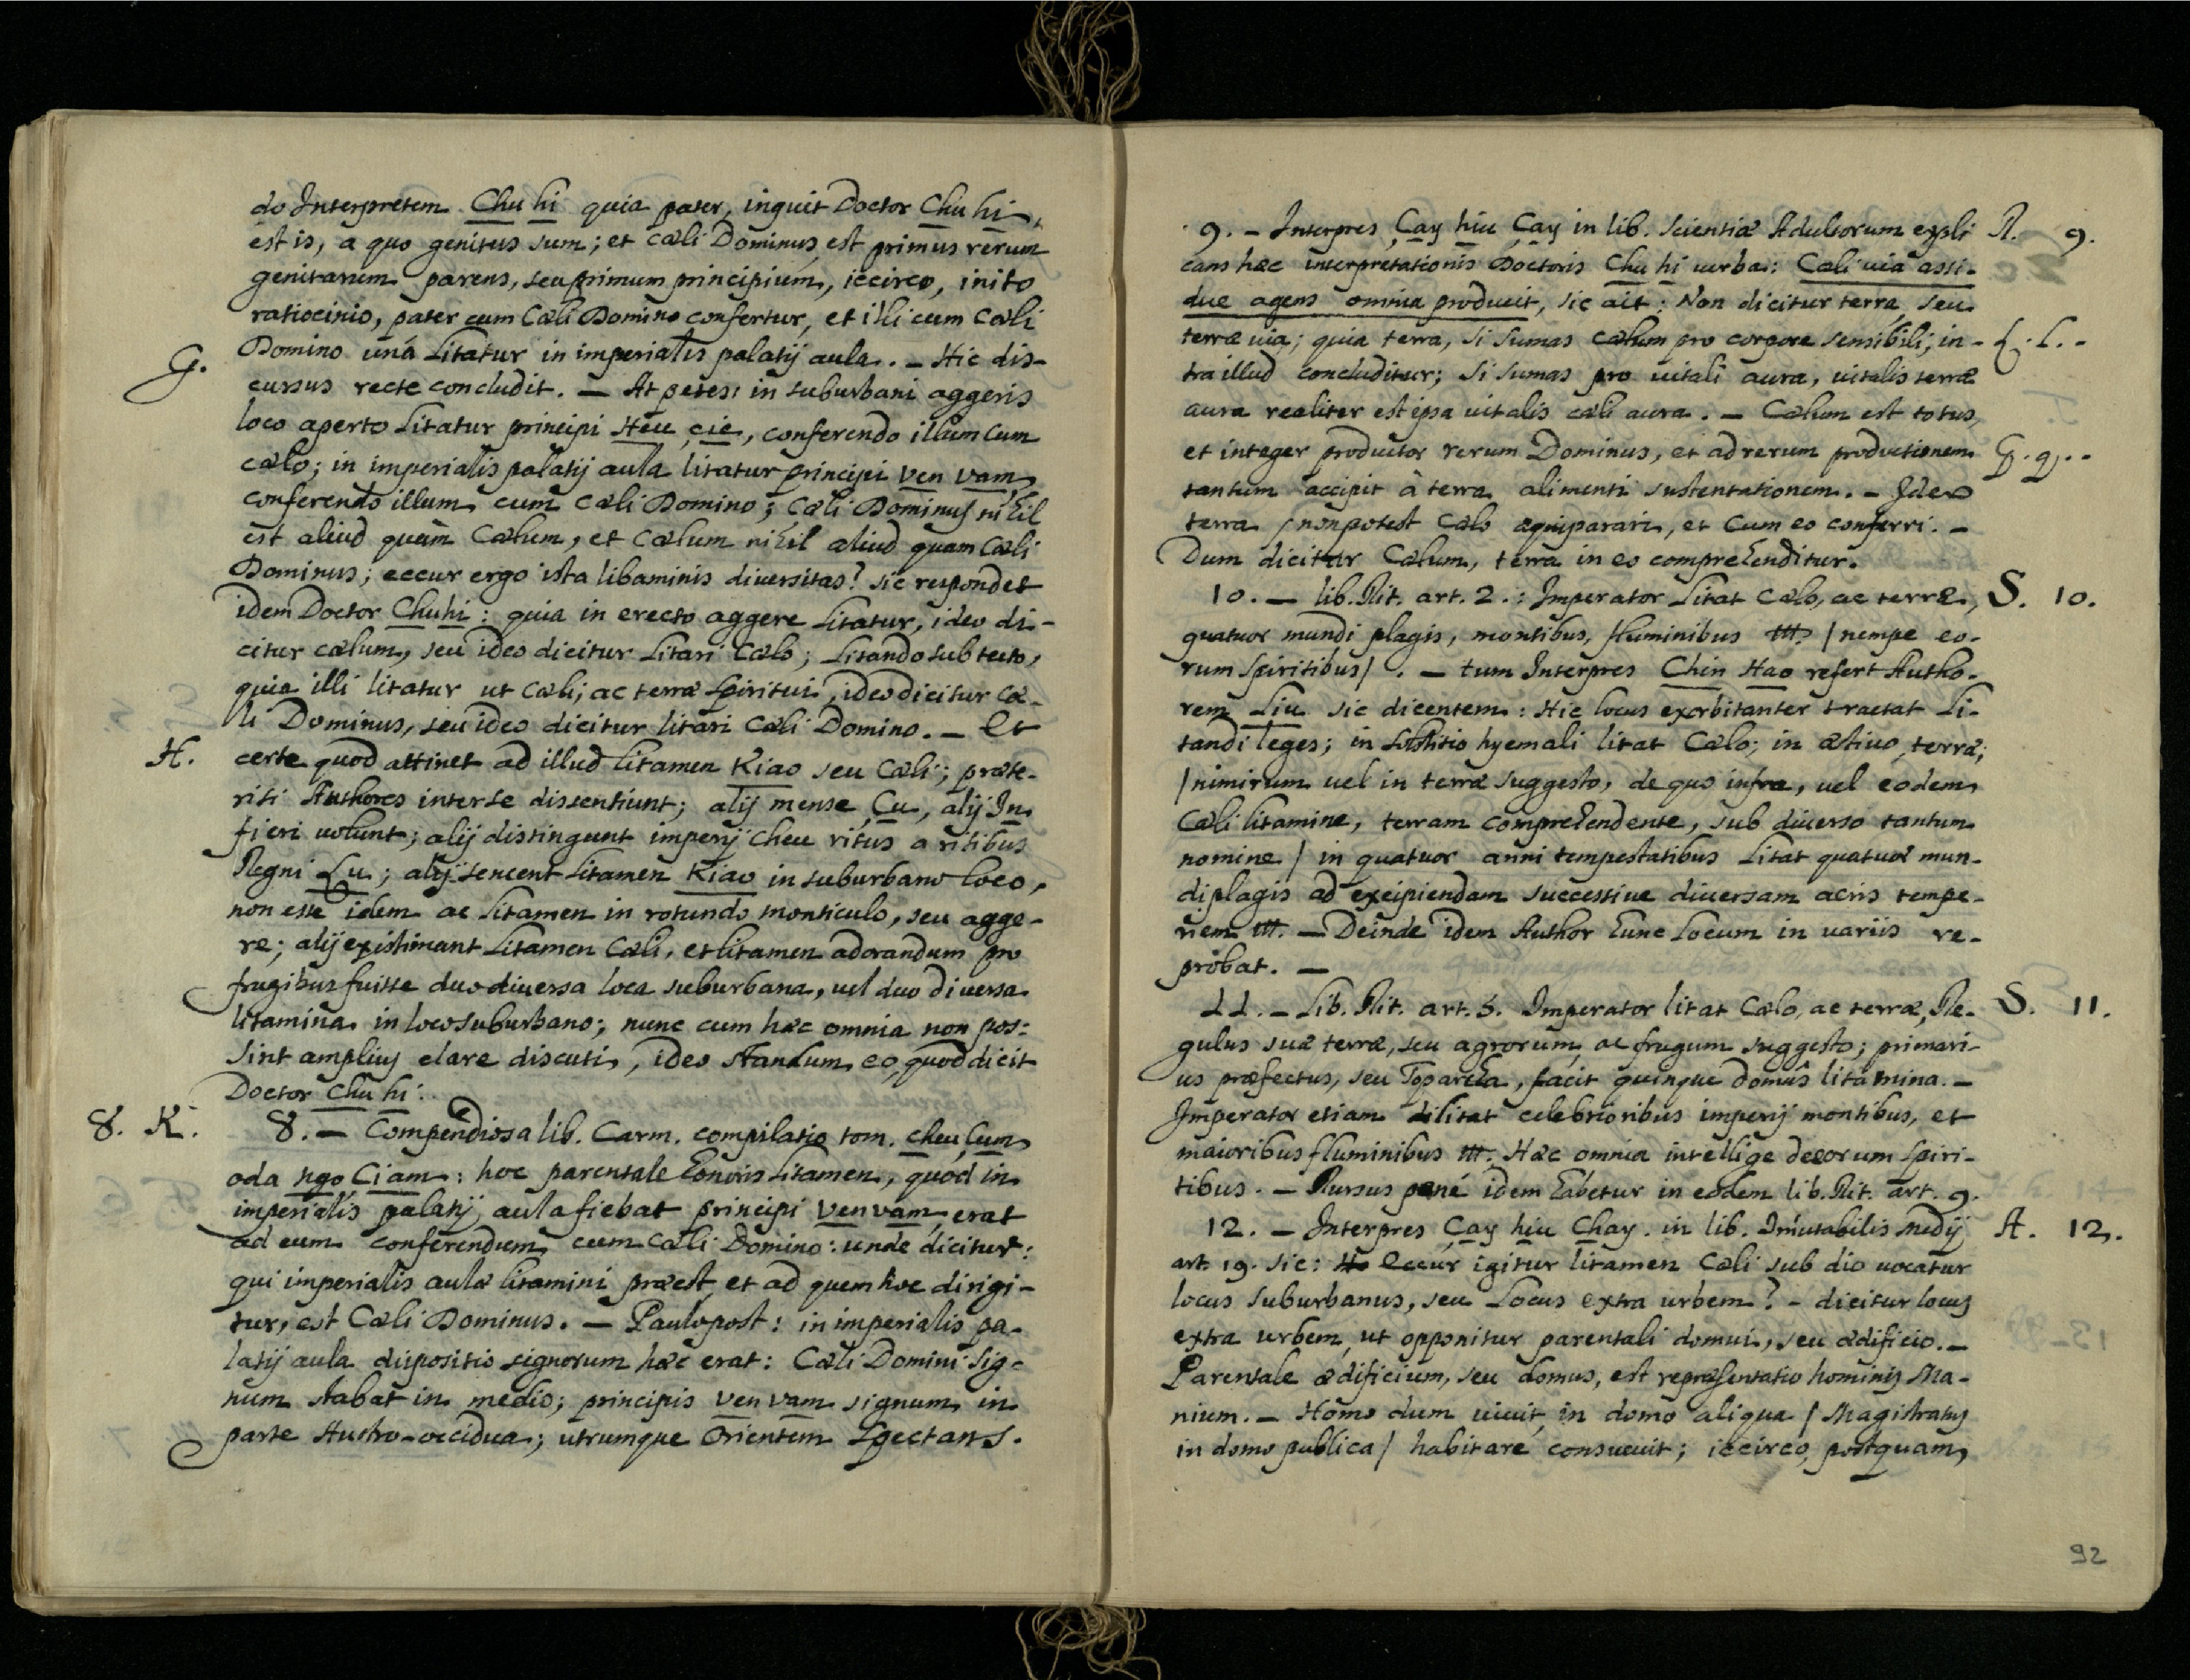 do Interpretem Chu hi quia pater, inquit Doctor Chu hi,
est is, a quo genitus sum; et cæli Dominus est primus rerum
genitarum parens, seu primum principium, iccirco, inito
ratiocinio, pater cum Cæli Domino confertur, et illi cum Cæli
Domino unà Litatur in imperialis palatij aula. – Hic dis-
G.
cursus recte concludit. – At petes: in suburbani aggeris
loco aperto Litatur principi Heu cie, conferendo illum cum
cælo; in imperialis palatij aula litatur principi Ven Vam,
conferendo illum cum Cæli Domino; Cæli Dominus nihil
est aliud quàm Cælum, et Cælum nihil aliud quam Cæli
Dominus; eccur ergo ista libaminis diversitas? sic respondet
idem Doctor Chuhi: quia in erecto aggere Litatur, ideo di-
citur cælum, seu ideo dicitur Litari Cælo; Litando sub tecto,
quia illi litatur ut Cæli, ac terræ Spiritui, ideo dicitur Cæ-
li Dominus, seu ideo dicitur litari Cæli Domino. – Et
H. certe quod attinet ad illud litamen Kiao seu Cæli; præte-
riti Authores inter se dissentiunt; alij mense Çu, alij In
fieri volunt; alij distingunt imperij Cheu ritus a ritibus
Regni Lu; alij sencent Litamen Kiao in suburbano loco,
non esse idem ac Litamen in rotundo monticulo, seu agge-
re; alij existimant Litamen Cæli, et litamen adorandum pro
frugibus fuisse duo diversa loca suburbana, vel duo diversa
litamina in loco suburbano; nunc cum hæc omnia non pos:
sint amplius clare discuti, ideo standum eo, quod dicit
Doctor Chu hi.
8. K. 8. – Compendiosa lib. Carm. compilatio tom. Cheu Çum
oda ngo Ciam: hoc parentale honoris Litamen, quod in
imperialis palatij aula fiebat principi Ven vam, erat
ad eum conferendum cum Cæli Domino: unde dicitur:
qui imperialis aulæ litamini præest, et ad quem hoc dirigi-
tur, est Cæli Dominus. – Paulo post: in imperialis pa-
latij aula dispositio signorum hæc erat: Cæli Domini Sig-
num stabat in medio; principis Ven vam signum in
parte Austro-occidua; utrumque Orientem Spectans.
9. – Interpres Çay hiu Çay in lib. Scientiæ Adultorum expli R. 9.
cans hæc interpretationis Doctoris Chu hi verba: Cæli via assi-
due agens omnia producit, sic ait: Non dicitur terra, seu
terræ via; quia terra, si sumas cælum pro corpore sensibili, in- L. L. -
tra illud concluditur; si sumas pro vitali aura, vitalis terræ
aura realiter est ipsa vitalis cæli aura. – Cælum est totus,
et integer productor rerum Dominus, et ad rerum productionem
tantum accipit à terra alimenti sustentationem. – Ideo
terra non potest Cælo æquiparari, et Cum eo conferri. –
Dum dicitur Cælum, terra in eo comprehenditur.
10. – lib. Rit. art. 2.: Imperator Litat Cælo, ac terræ, S. 10.
quatuor mundi plagis, montibus, fluminibus / nempe eo-
rum Spiritibus/. – tum Interpres Chin Hao refert Autho-
rem Liu sic dicentem: Hic locus exorbitanter tractat Li-
tandi leges; in solstitio hyemali litat Cælo; in æstivo, terræ;
/nimirum vel in terræ suggesto, de quo infra, vel eodem
Cæli litamine, terram comprehendente, sub diverso tantum
nomine/ in quatuor anni tempestatibus Litat quatuor mun-
di plagis ad excipiendam successive diversam aeris tempe-
riem. – Deinde idem Author hunc Locum in variis re-
probat. –
11. – Lib. Rit. art. 5. Imperator litat Cælo, ac terræ, Re- S. 11.
gulus suæ terræ, seu agrorum, ac frugum suggesto; primari-
us præfectus, seu Toparcha, facit quinque domûs litamina. –
Imperator etiam litat celebrioribus imperij montibus, et
maioribus fluminibus. Hæc omnia intellige de eorum Spiri-
tibus. – Rursus penè idem habetur in eodem lib. Rit. art. 9.
12. – Interpres Çay hiu Chay. in lib. Immutabilis Medij A. 12.
art. 19. sic: Eccur igitur litamen Cæli sub dio vocatur
locus Suburbanus, seu Locus extra urbem? – dicitur locus
extra urbem, ut opponitur parentali domui, seu ædificio. –
Parentale ædificium, seu domus, est repræsentatio hominis Ma-
nium. – Homo dum vivit, in domo aliqua /Magistratus
in domo publica/ habitare consuevit; iccirco, postquam
92